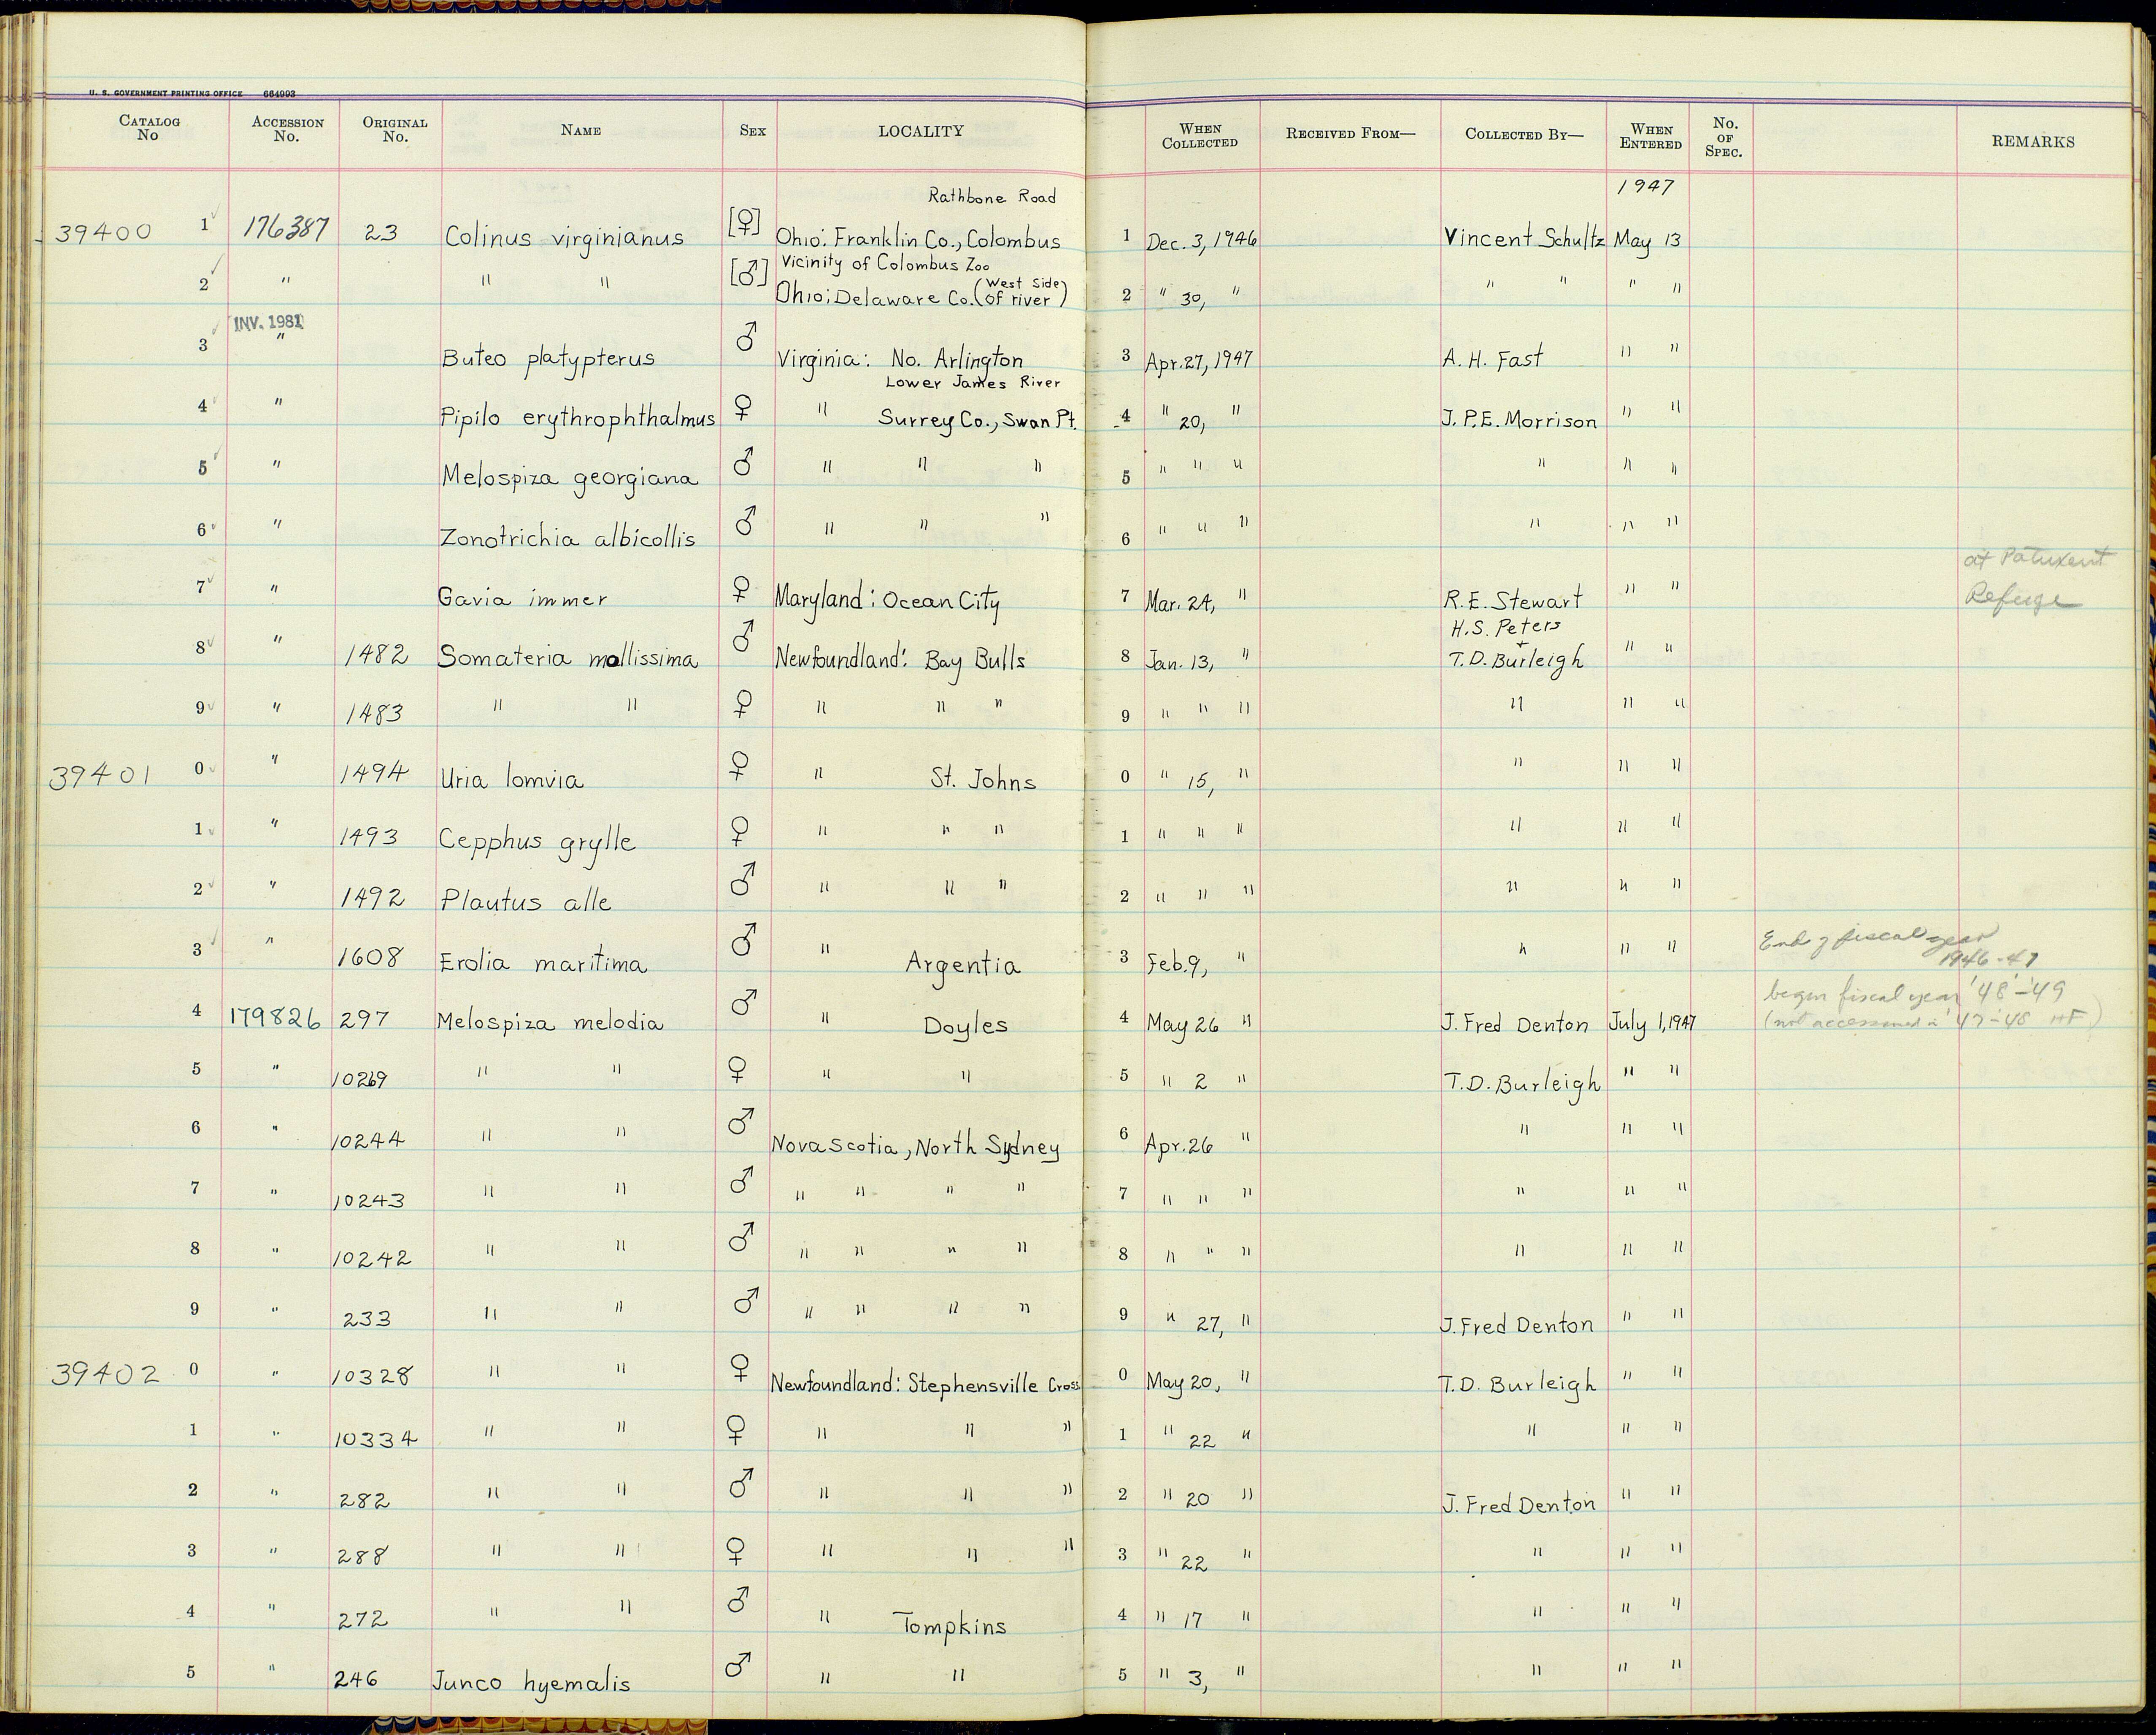 U. S. GOVERNMENT PRINTING OFFICE 664993
CATALOG No ACCESSION No. ORIGINAL No. NAME SEX LOCALITY WHEN COLLECTED RECEIVED FROM— COLLECTED BY— WHEN ENTERED No. OF SPEC. REMARKS
Rathbone Road 1947
39400 1 176387 23 Colinus virginianus [♀] Ohio: Franklin Co., Colombus 1 Dec. 3, 1946 Vincent Schultz May 13
Vicinity of Colombus Zoo
2 " " " [♂] Ohio; Delaware Co. (West Side of river) 2 " 30, " " " " "
INV. 1981
3 " Buteo platypterus ♂ Virginia: No. Arlington 3 Apr. 27, 1947 A. H. Fast " "
Lower James River
4 " Pipilo erythrophthalmus ♀ " Surrey Co., Swan Pt. 4 " 20, " J. P. E. Morrison " "
5 " Melospiza georgiana ♂ " " " 5 " " " " " "
6 " Zonotrichia albicollis ♂ " " " 6 " " " " " "
at Patuxent
7 " Gavia immer ♀ Maryland: Ocean City 7 Mar. 24, " R. E. Stewart " " Refuge
H. S. Peters
+
8 " 1482 Somateria mollissima ♂ Newfoundland: Bay Bulls 8 Jan. 13, " T. D. Burleigh " "
9 " 1483 " " ♀ " " " 9 " " " " " "
39401 0 " 1494 Uria lomvia ♀ " St. Johns 0 " 15, " " " "
1 " 1493 Cepphus grylle ♀ " " " 1 " " " " " "
2 " 1492 Plautus alle ♂ " " " 2 " " " " " "
End of fiscal year
3 " 1608 Erolia maritima ♂ " Argentia 3 Feb. 9, " " " " 1946-47
begin fiscal year '48-'49
4 179826 297 Melospiza melodia ♂ " Doyles 4 May 26 " J. Fred Denton July 1, 1947 (not accessioned in '47-'48 HF)
5 " 10269 " " ♀ " " 5 " 2 " T. D. Burleigh " "
6 " 10244 " " ♂ Nova Scotia, North Sydney 6 Apr. 26 " " " "
7 " 10243 " " ♂ " " " " 7 " " " " " "
8 " 10242 " " ♂ " " " " 8 " " " " " "
9 " 233 " " ♂ " " " " 9 " 27, " J. Fred Denton " "
39402 0 " 10328 " " ♀ Newfoundland: Stephensville Cross 0 May 20, " T. D. Burleigh " "
1 " 10334 " " ♀ " " " 1 " 22 " " " "
2 " 282 " " ♂ " " " 2 " 20 " J. Fred Denton " "
3 " 288 " " ♀ " " " 3 " 22 " " " "
4 " 272 " " ♂ " Tompkins 4 " 17 " " " "
5 " 246 Junco hyemalis ♂ " " 5 " 3, " " " "